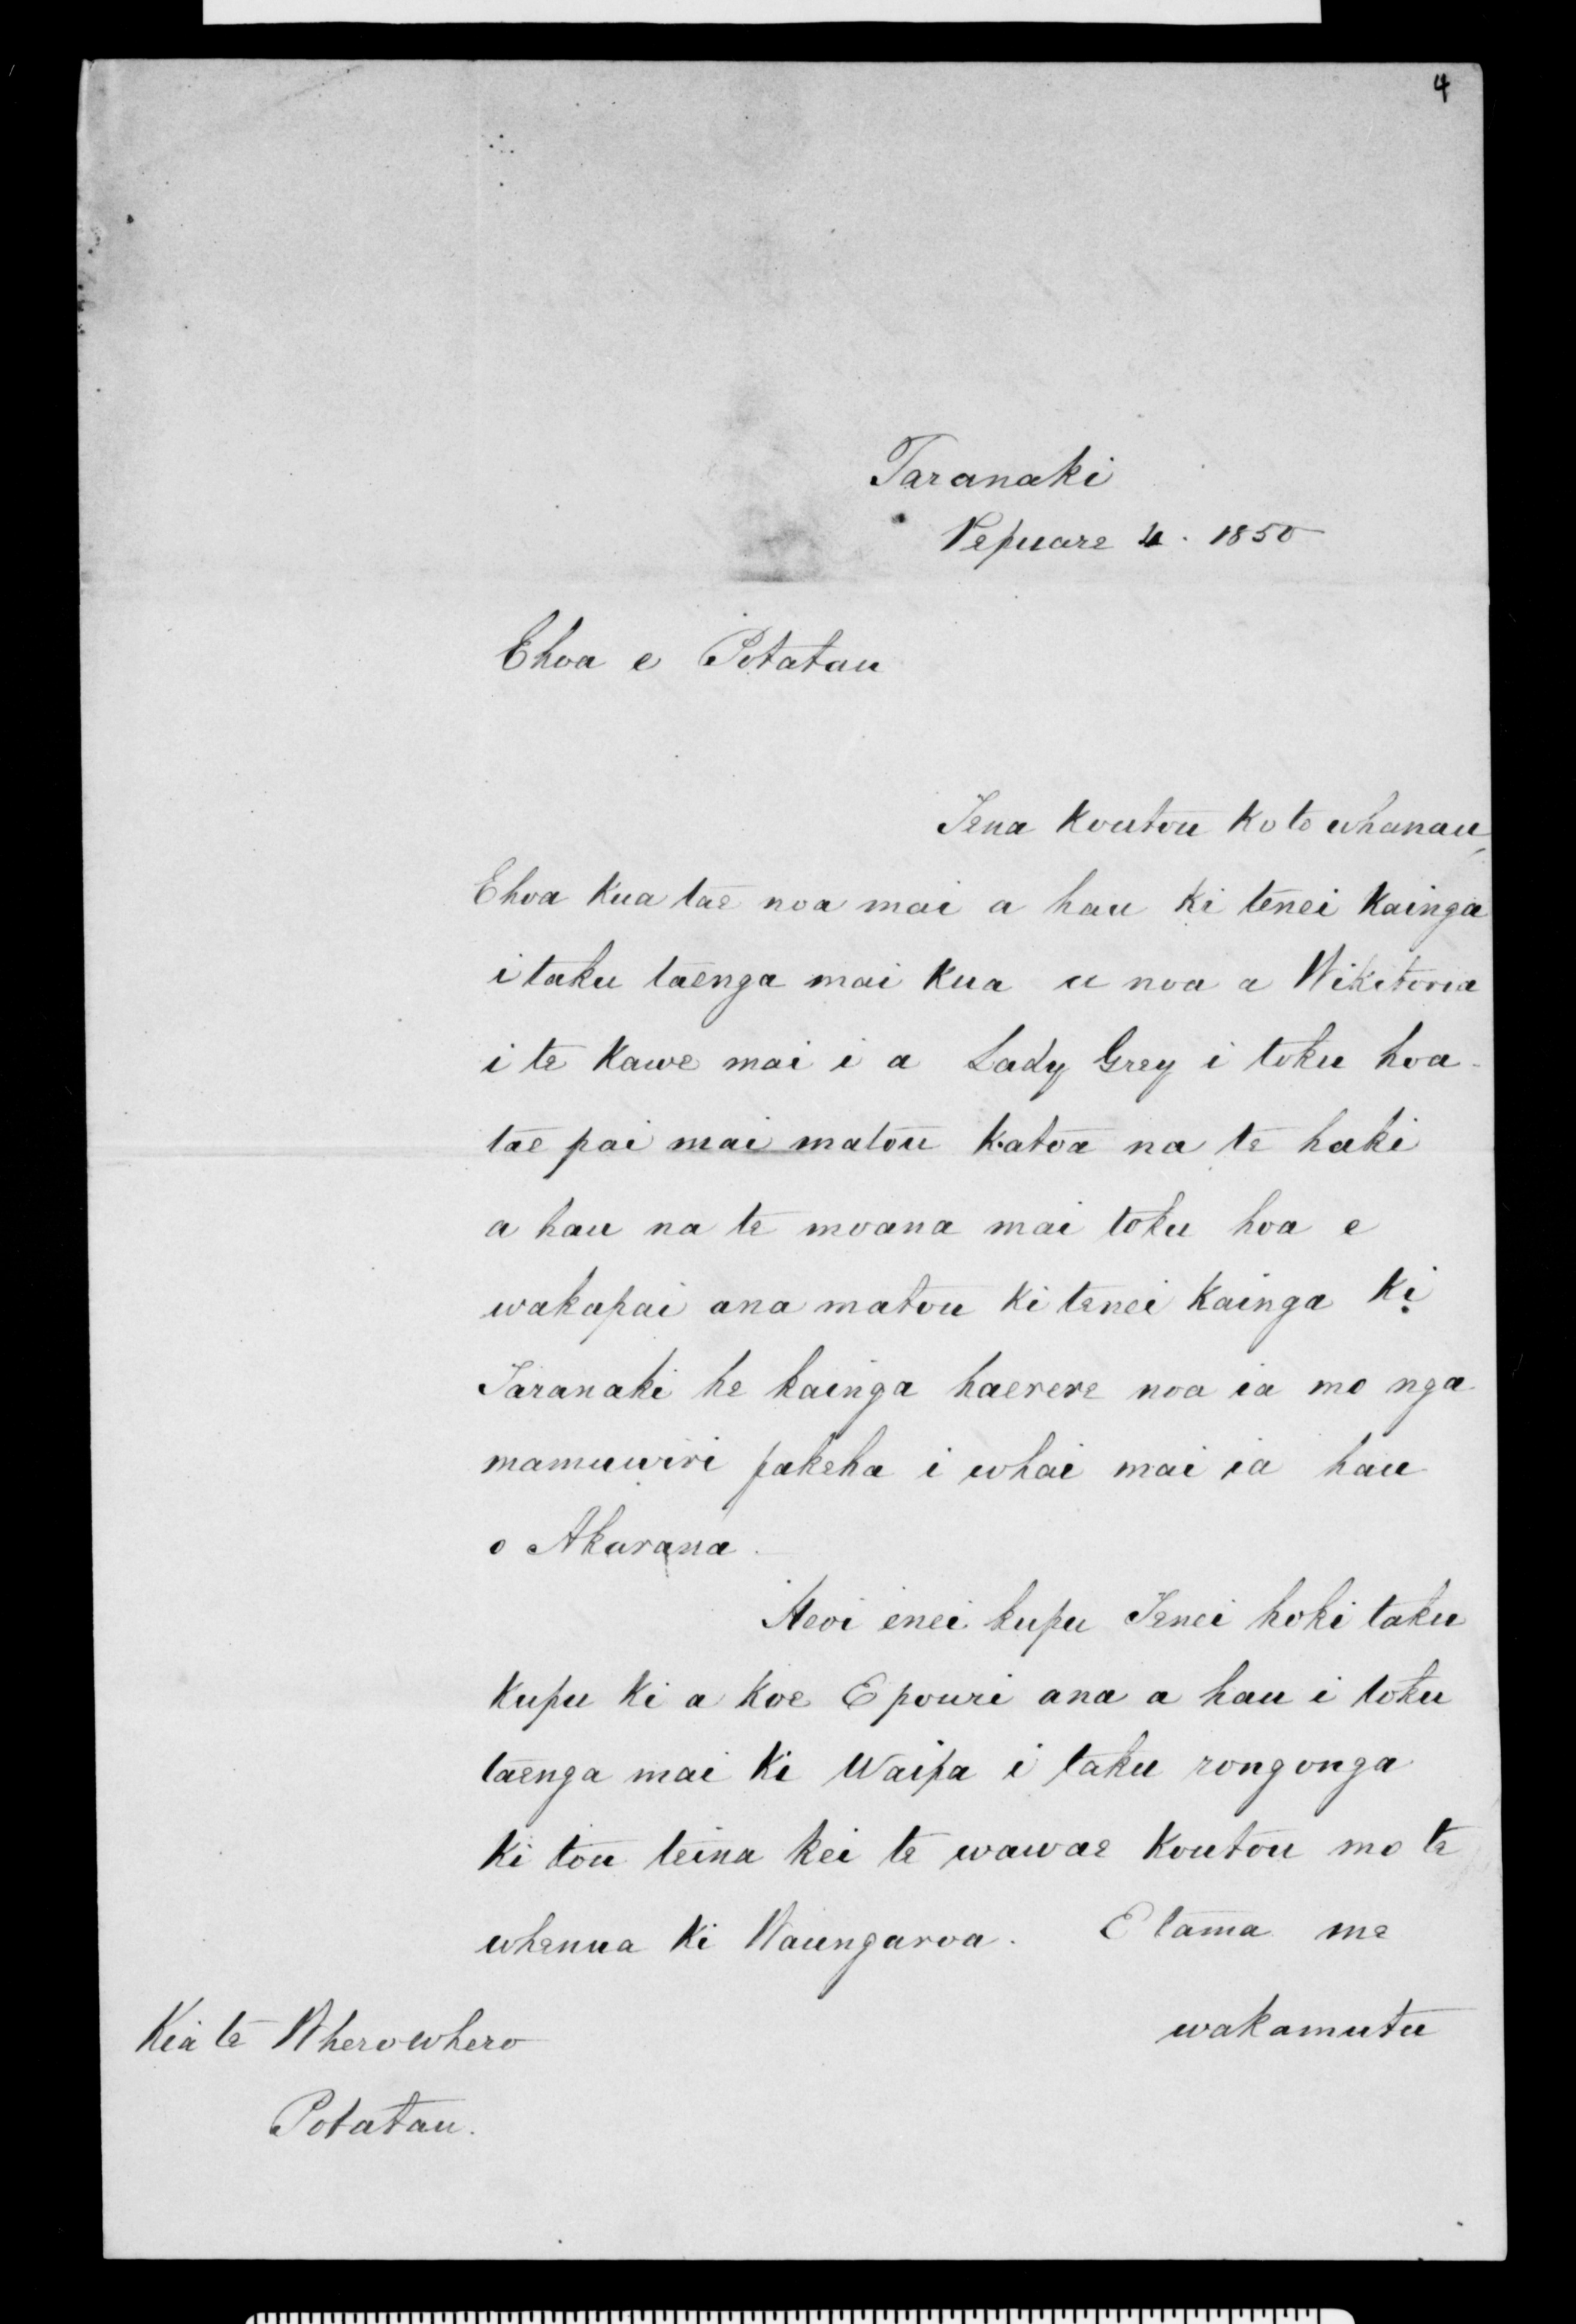 4
Taranaki
Pepuare 4. 1850
Ehoa e Potatau
Tena Koutou Ko te whanau,
Ehoa Kua tae noa mai a hau ki tenei Kainga
i taku taenga mai Kua u noa a Wikitoria
i te Kawe mai i a Lady Grey i toku hoa -
tae pai mai matou Katoa na te haki
a hau na te moana mai toku hoa e
wakapai ana matou Ki tenei Kainga Ki
Taranaki he kainga haerere noa ia mo nga
mamuwiri pakeha i whai mai ia hau
o Akarana.
Heoi enei kupu Tenei hoki taku
Kupu Ki a Koe E pouri ana a hau i toku
taenga mai Ki Waipa i taku rongonga
Ki tou teina kei te wawae Koutou mo te
whenua Ki Waungaroa. E tama me
wakamutu
Kia te Wherowhero
Potatau.